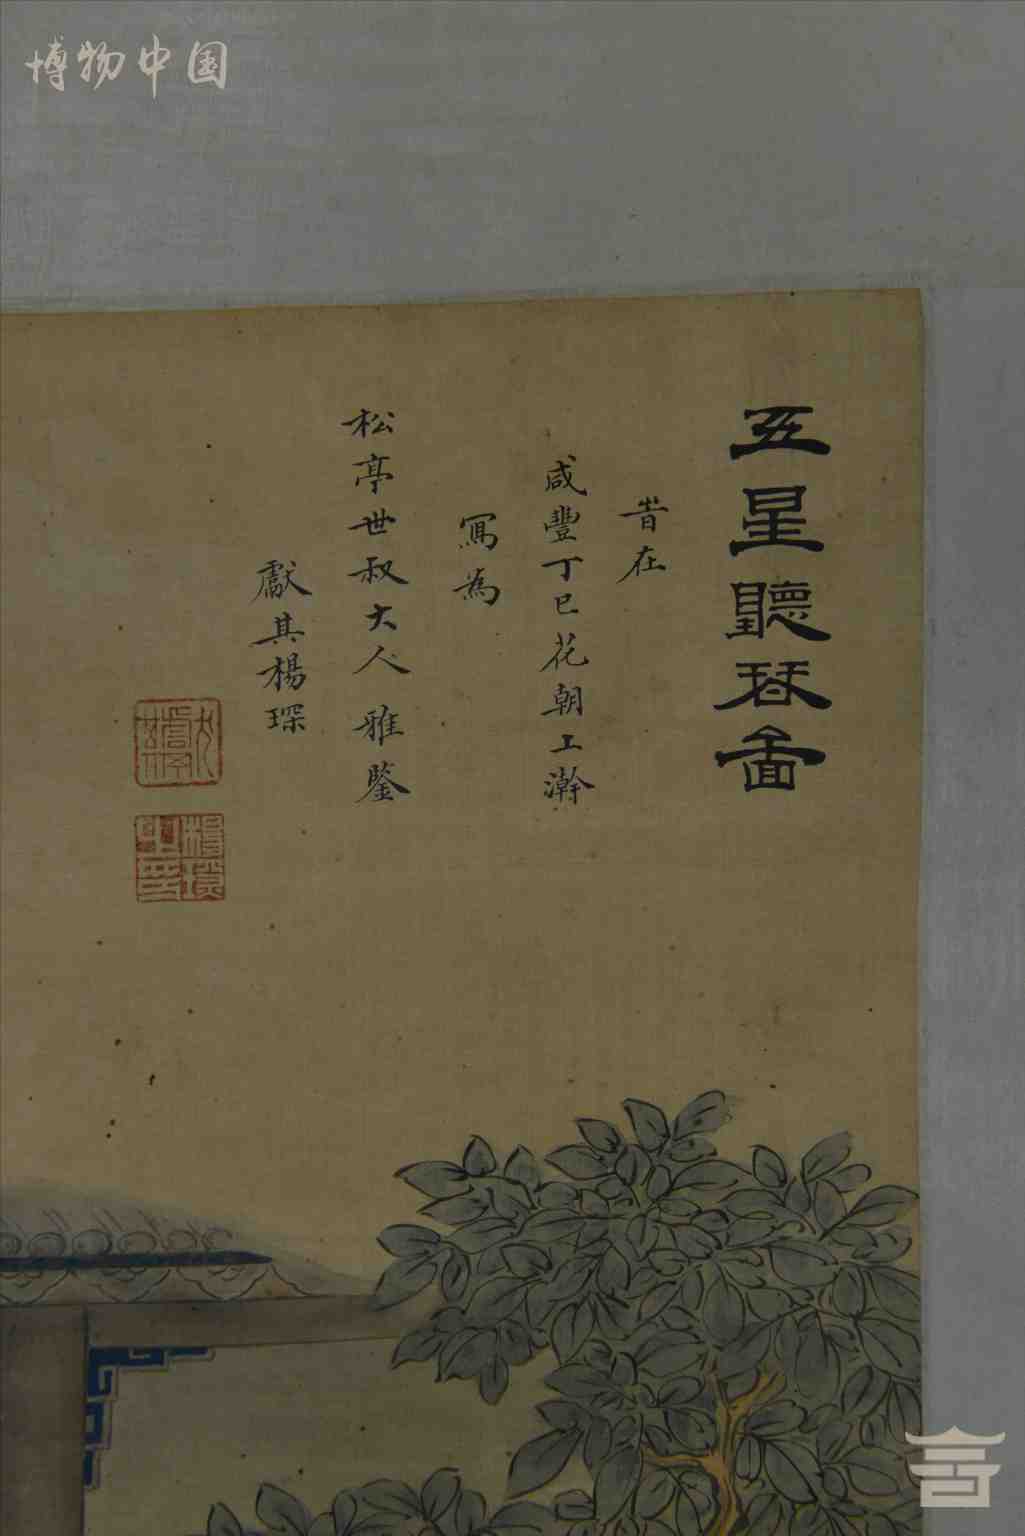 博物中国
五星聽琴啚
旹在
咸豐丁巳花朝上澣
寫為
松亭世叔大人雅鑒
獻其楊琛